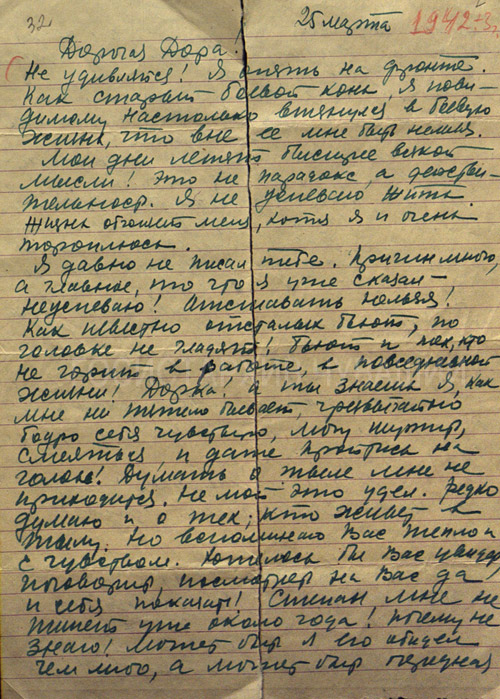 32 25 марта 1942
Дорогая Дора!
Не удивляйся! Я опять на фронте.
Как старый боевой конь я пови-
димому настолько втянулся в боевую
жизнь, что вне ее мне быть нельзя.
Мои дни летят быстрее всякой
мысли! Это не парадокс, а действи-
тельность. Я не успеваю жить.
Жизнь обгоняет меня, хотя я и очень
тороплюсь.
Я давно не писал тебе. Причин много,
а главное, то что я уже сказал –
неуспеваю! Отставать нельзя!
Как известно отсталых бьют, по
головке не гладят! Бьют и тех, кто
не горит в работе, в повседневной
жизни! Дорка! а ты знаешь я, как
мне ни тяжело бывает, чрезвычайно
бодро себя чувствую, могу шутить,
смеяться и даже пройтись на
голове! Думать о тыле мне не
приходится. Не мой это удел. Редко
думаю и о тех, кто живет в
тылу. Но вспоминаю Вас тепло и
с чувством. Хотелось бы Вас увидеть
поговорить, посмотреть на Вас да
и себя показать! Степан мне не
пишет уже около года! Почему не
знаю! Может быть я его обидел
чем либо, а может быть